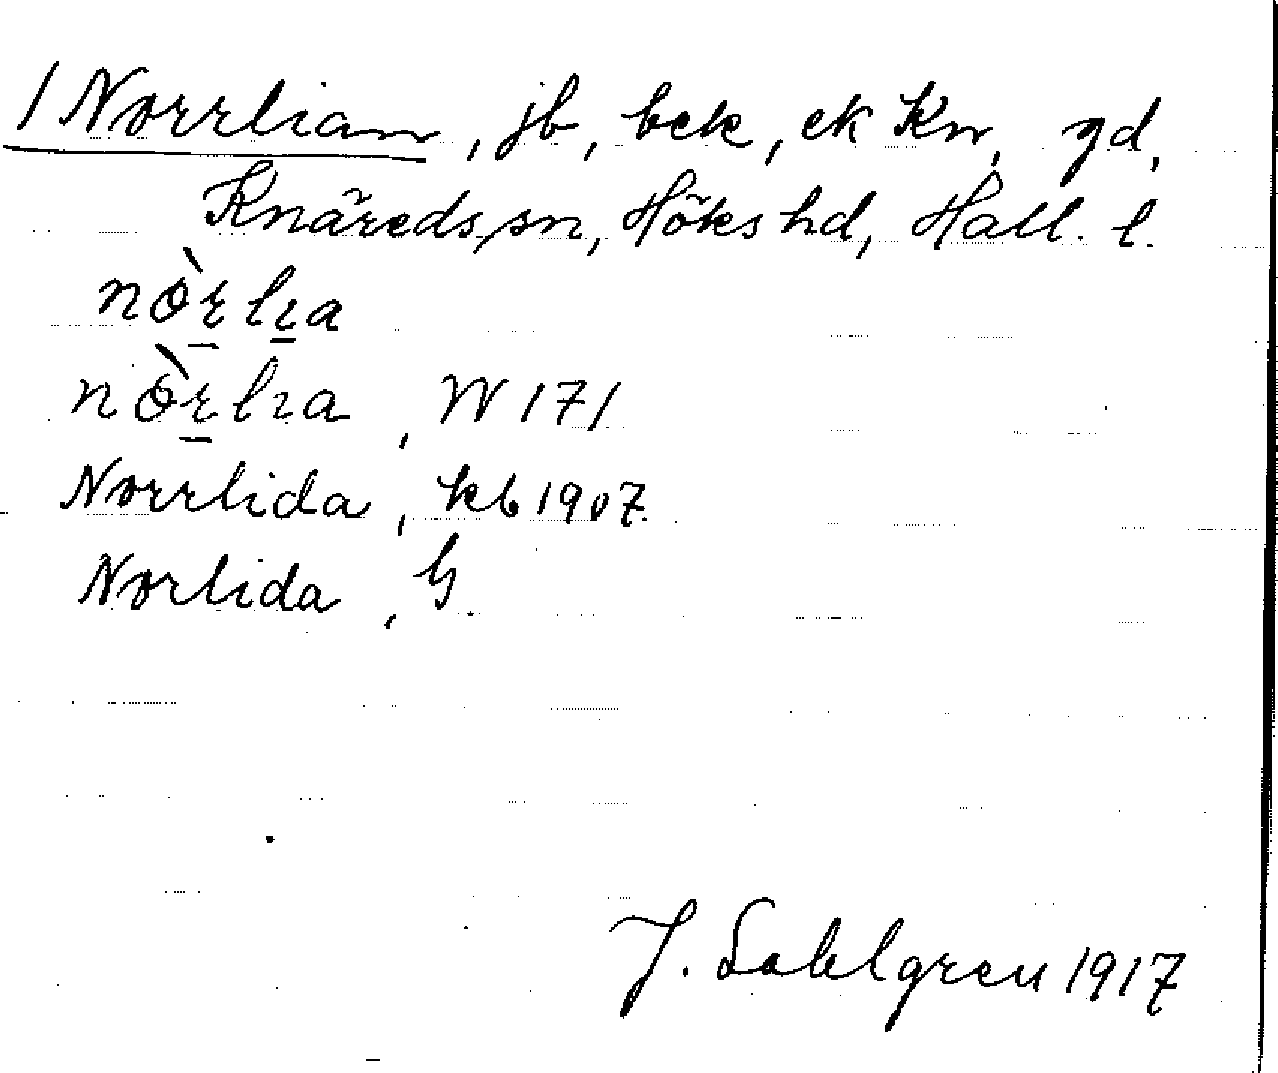 / Norrlian, jb, bck, ek Kn, gd,
Knäreds sn, Höks hd, Hall. l.
nòrlıa
nòrlıa, W 171
Norrlida, kb 1907.
Norlida, G.
J. Sahlgren 1917